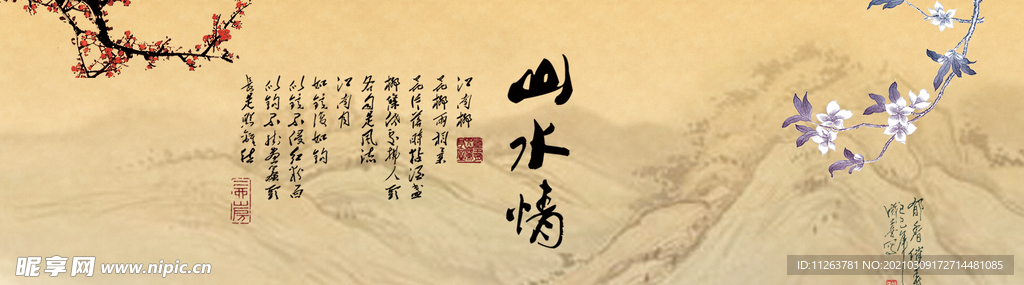 山水情
江南柳
花柳兩相柔
花片落時粘酒盞
柳條低處拂人頭
各自是風流
江南月
如鏡復如鉤
似鏡不侵紅粉面
似鉤不挂畫簾頭
長是照離愁
昵享网 www.nipic.cn
ID:11263781 NO:20210309172714481085